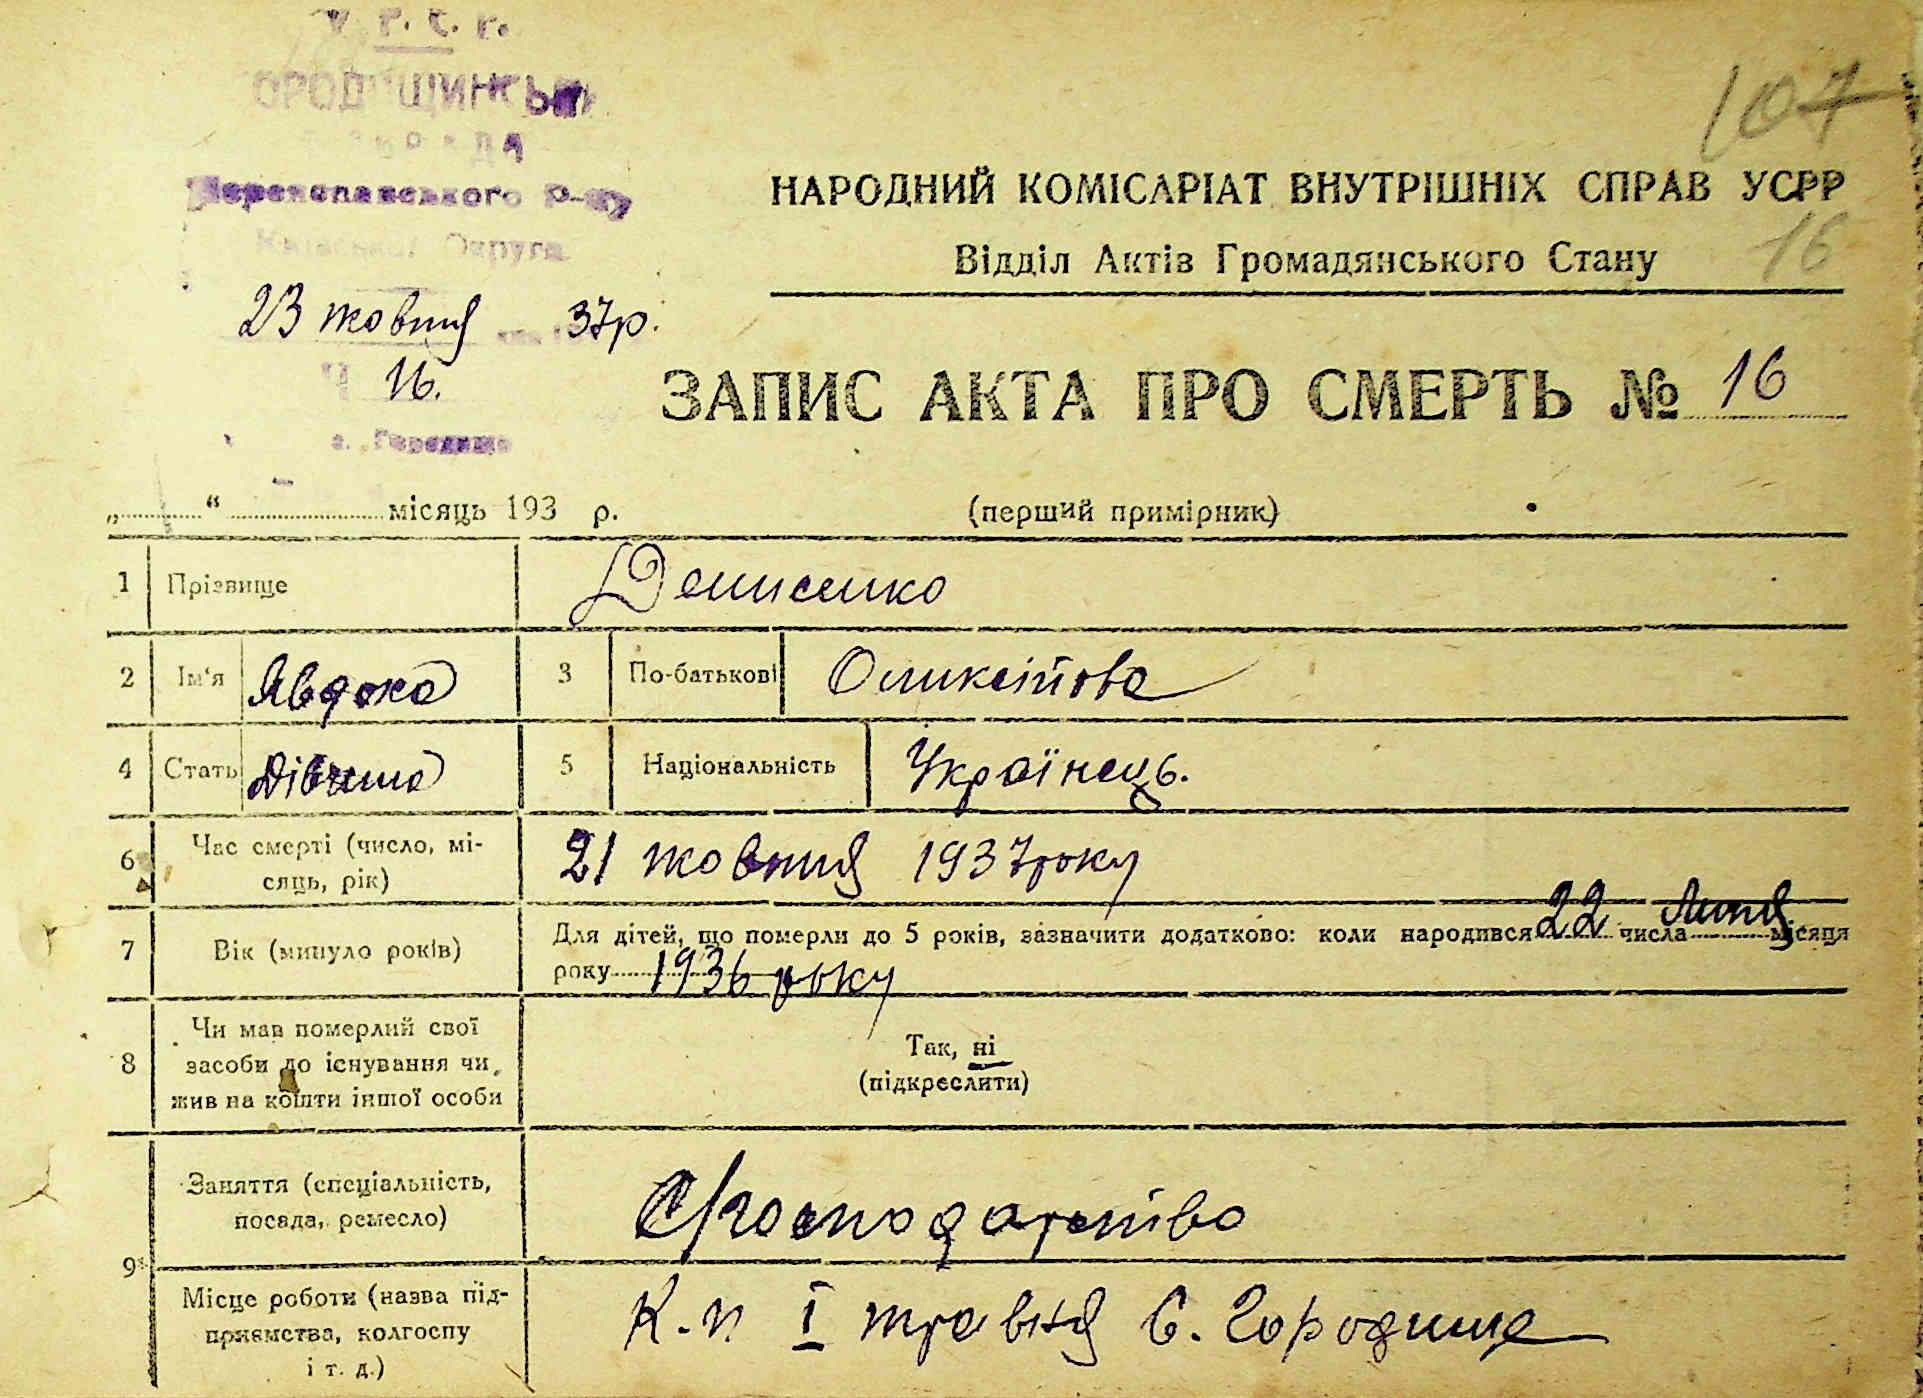 У. Р. С. Р.
ГОРОДИЩИНСЬКА
СІЛЬРАДА
Переяславського Р-ну
Київської Округи
107
НАРОДНИЙ КОМІСАРІАТ ВНУТРІШНІХ СПРАВ УСРР
Відділ Актів Громадянського Стану
16
23 жовтня 37р.
Ч 16.
с. Городище
ЗАПИС АКТА ПРО СМЕРТЬ № 16
„ “ місяць 193 р.
(перший примірник)
1 Прізвище Денисенко
2 Ім'я Явдока 3 По-батькові Оликсійова
4 Стать Дівчина 5 Національність Українець.
6 Час смерті (число, мі-
сяць, рік) 21 жовтня 1937року
7 Вік (минуло років) Для дітей, що померли до 5 років, зазначити додатково: коли народився 22 числа Липня місяця
року 1936 року
8 Чи мав померлий свої
засоби до існування чи
жив на кошти іншої особи
Так, ні
(підкреслити)
9 Заняття (спеціальність,
посада, ремесло)
Місце роботи (назва під-
приємства, колгоспу
і т. д.)
К.п I травня С. Городище